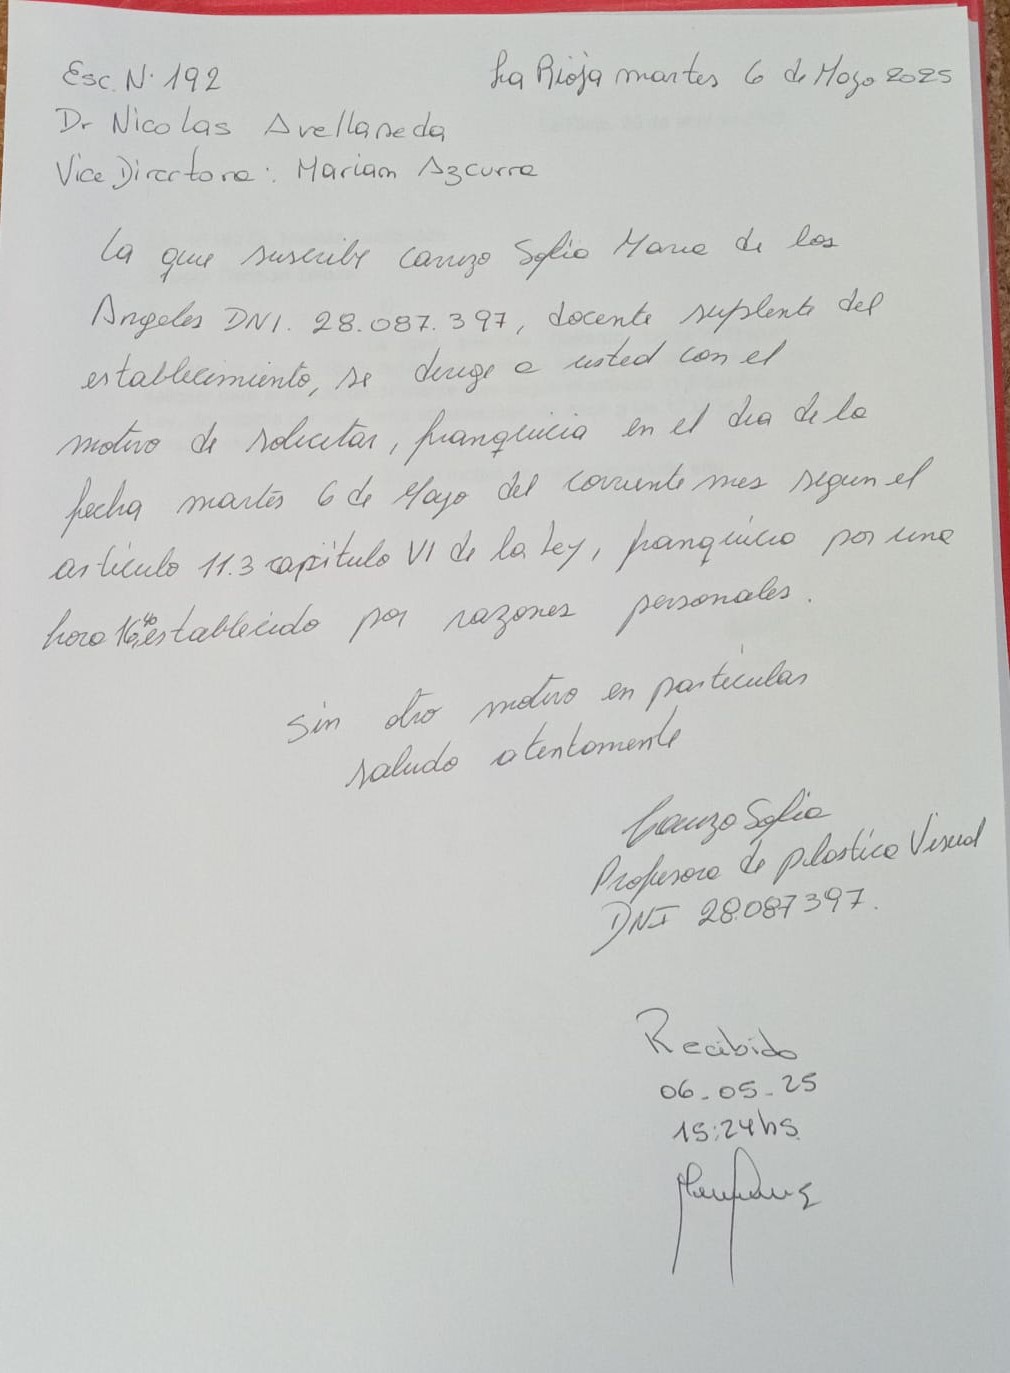 Esc. N· 192
La Rioja martes 6 de Mayo 2025
Dr Nicolas Avellaneda
Vice Directora: Mariam Azcurra
La que suscribe Carrizo Sofia Maria de los
Angeles DNI. 28.087.397, docente suplente del
establecimiento, se dirige a usted con el
motivo de solicitar, franquicia en el dia de la
fecha martes 6 de Mayo del corriente mes segun el
articulo 11.3 capitulo VI de la Ley, franquicia por una
hora 16:40 establecido por razones personales.
Sin otro motivo en particular
saludo atentamente
Carrizo Sofia
Profesora de plastica Visual
DNI 28.087397.
Recibido
06-05-25
15:24hs.